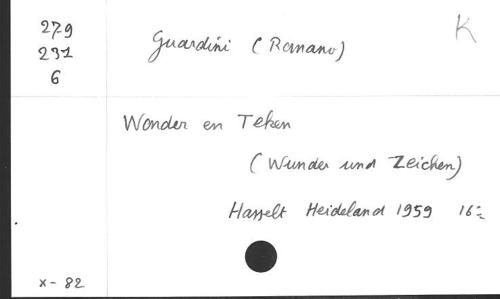 279
231
6
K
Guardini (Romano)
Wonder en Teken
(Wunder und Zeichen)
Hasselt Heideland 1959 16=
x - 82